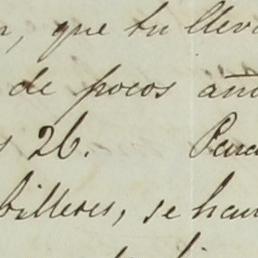 , que tu llev
de pocos añ
s 26. Para
billetes, se han